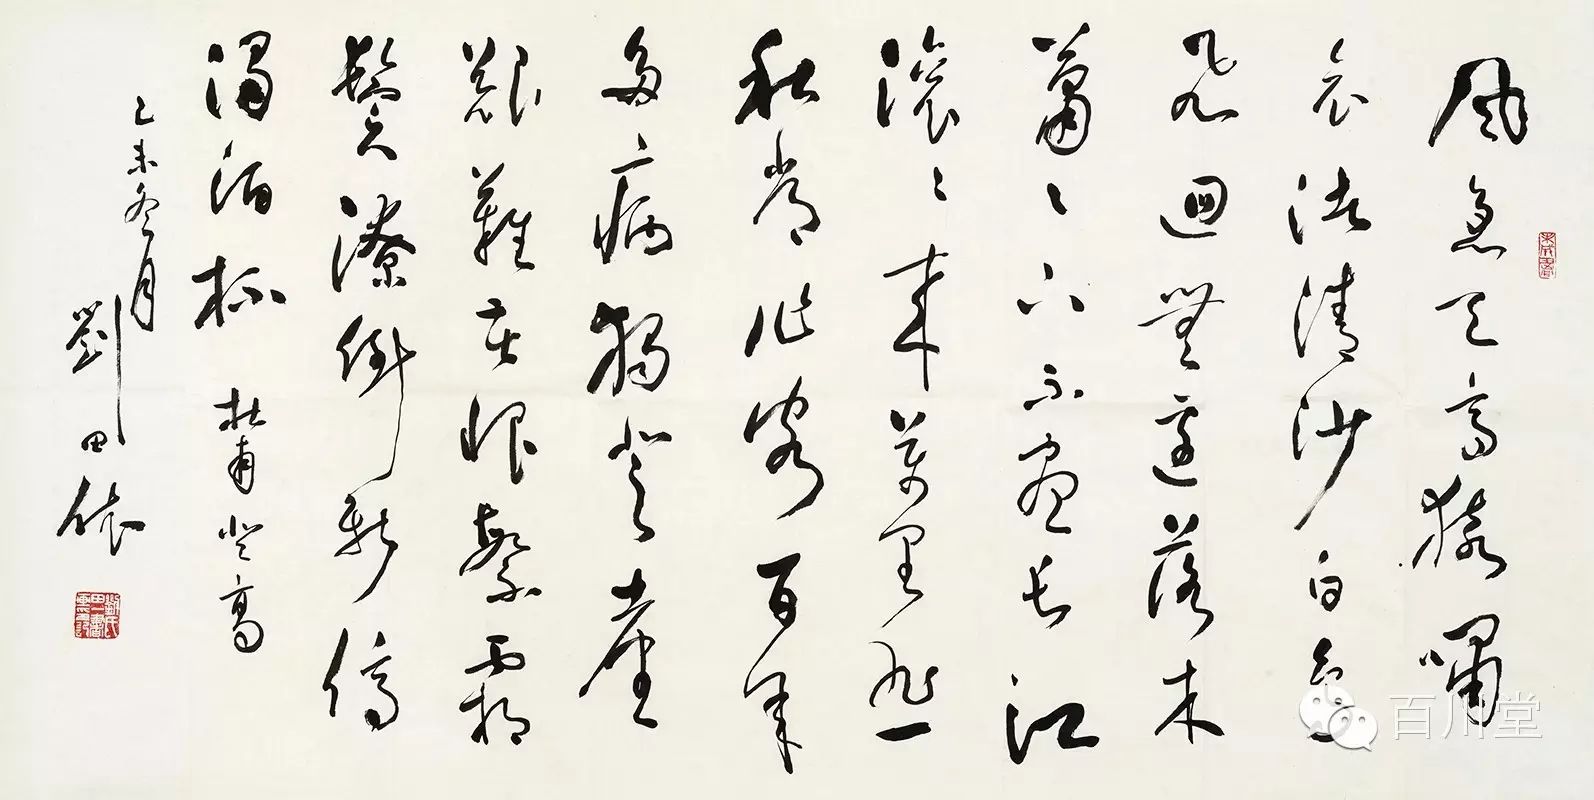 風急天高猿嘯
哀渚清沙白鳥
飛迴無邊落木
蕭〻下不盡長江
滾〻來萬里悲
秋常作客百年
多病獨登臺
艱難苦恨繁霜
鬢潦倒新停
濁酒杯 杜甫登高
乙未冬月
劉田依
百川堂